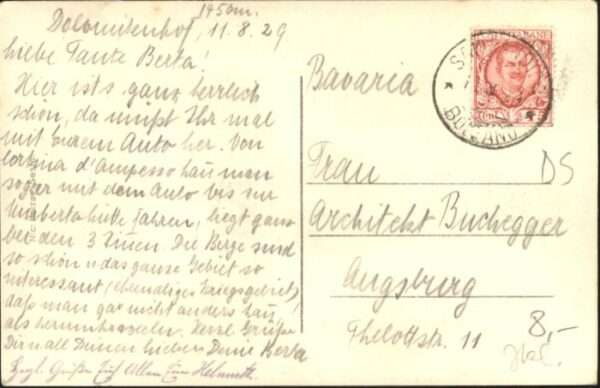 1450m.
Dolomitenhof, 11.8.29
Liebe Tante Berta!
Hier ist's ganz herrlich
schön, da müßt Ihr mal
mit Eurem Auto her. Von
Cortina d'Ampezzo kann man
sogar mit dem Auto bis zur
Umbertohütte fahren, liegt ganz
bei den 3 Zinnen. Die Berge sind
so schön u. das ganze Gebiet so
interessant (ehemaliges Kriegsgebiet)
daß man gar nicht anders kann,
als herumkraxeln. Herzl. Grüße
Dir u. all Deinen Lieben Deine Berta
Herzl. Grüße Euch Allen Euer Helmuth.
Bavaria
BOLZANO
Frau
Architekt Buchegger
Augsburg
Thelottstr. 11
DS
8,-